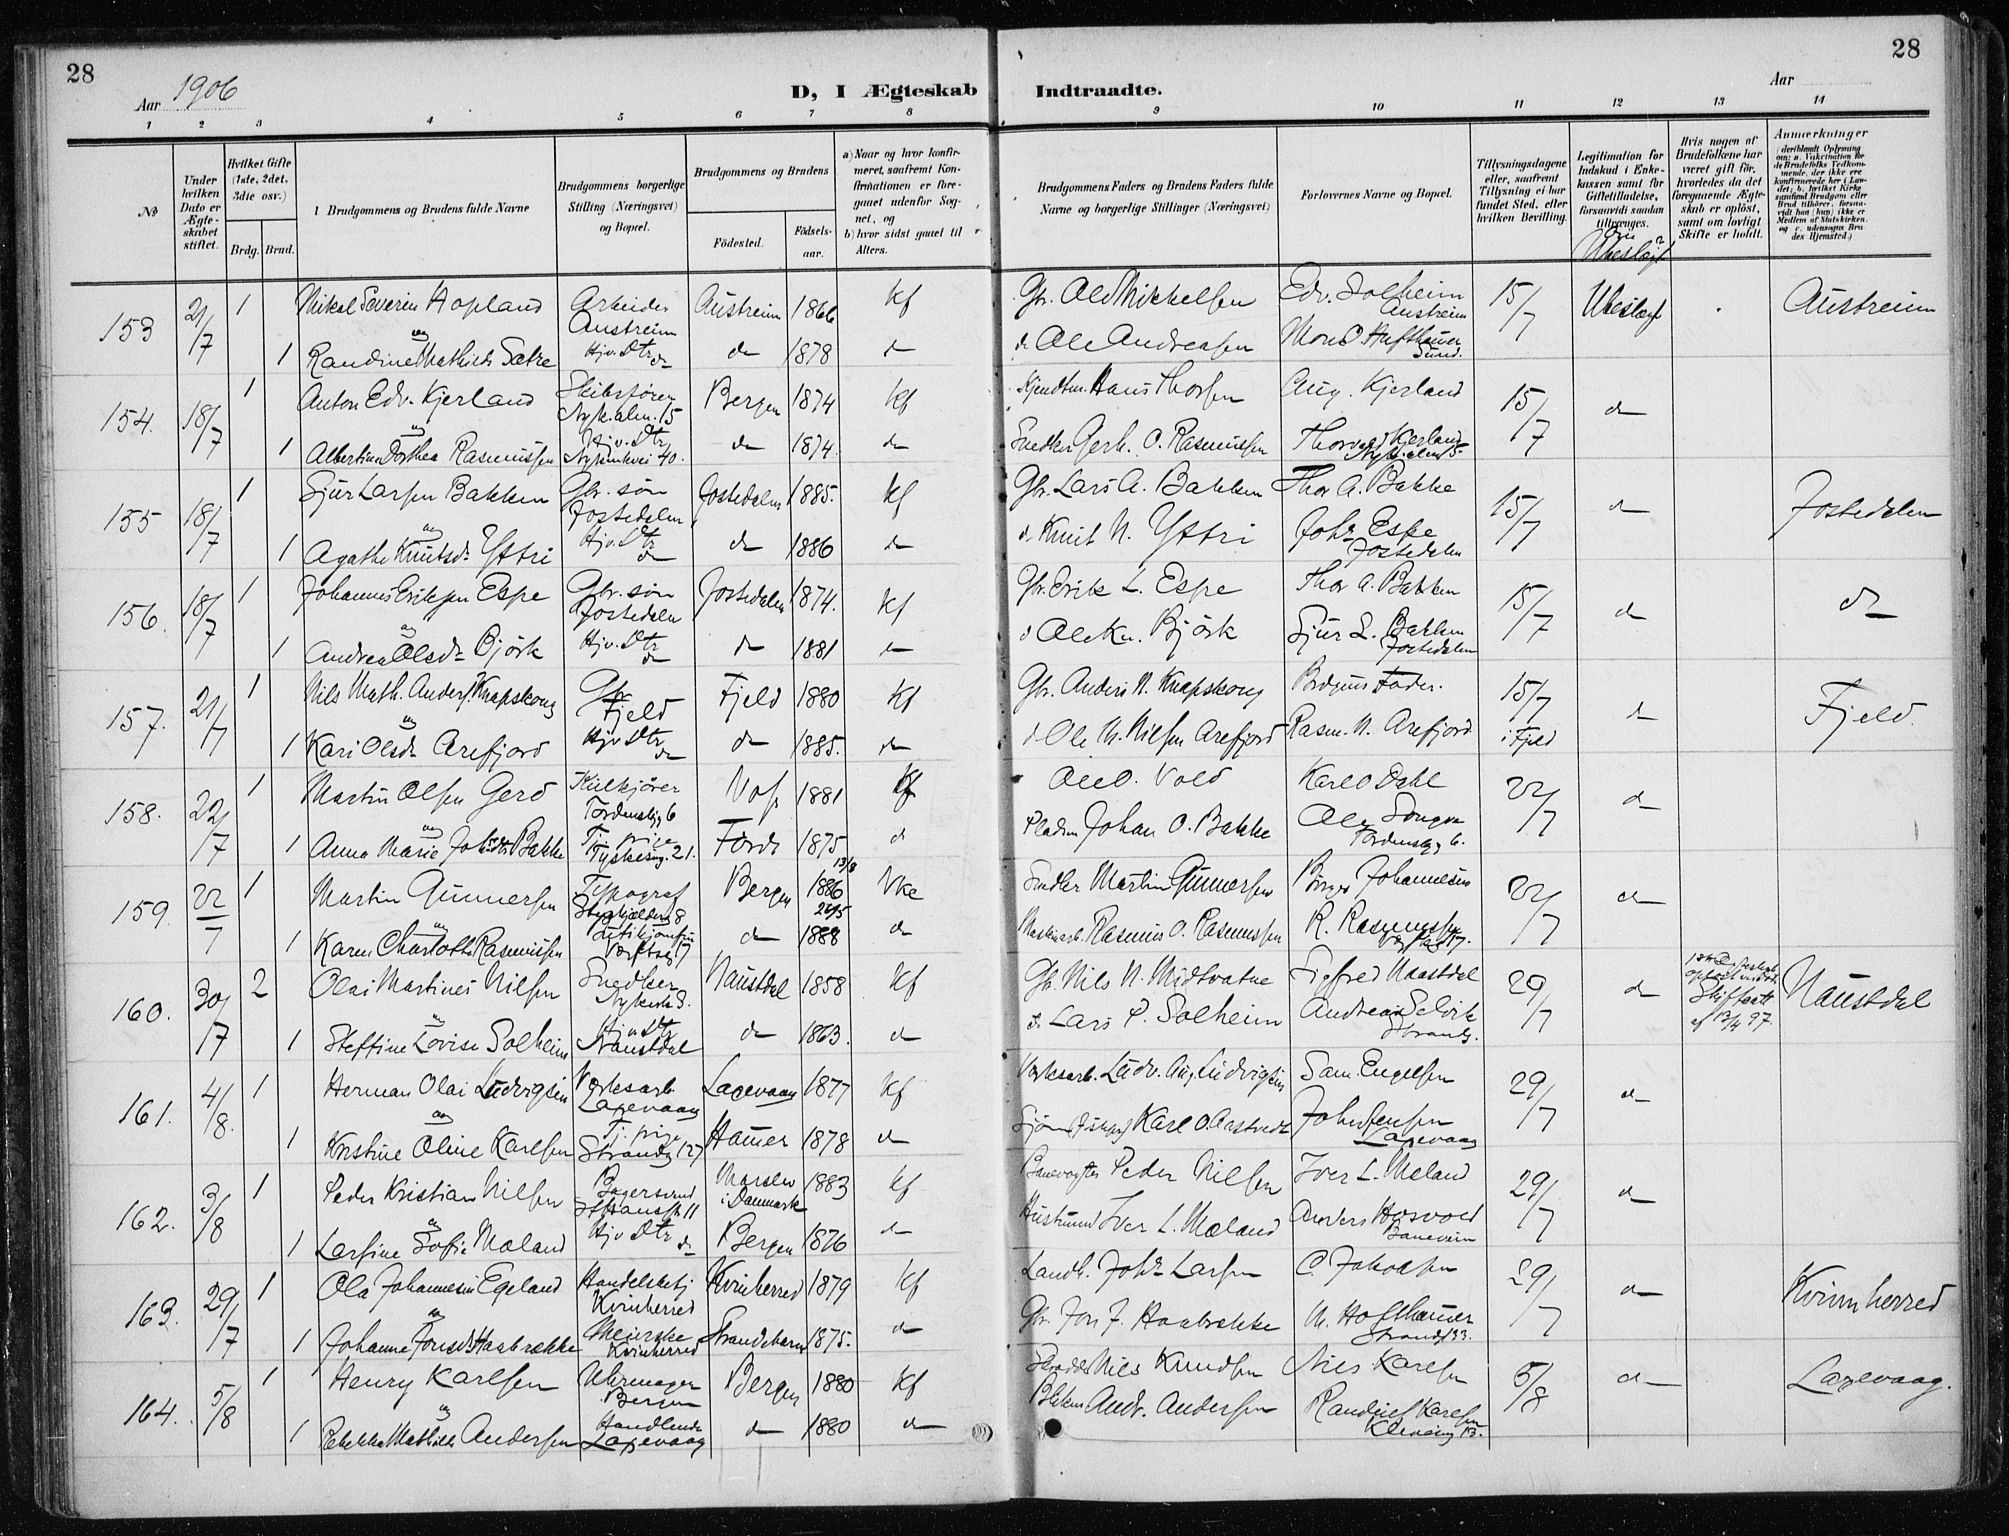 28
Aar 1906
D, I Ægteskab Indtraadte.
Aar
28
1 2 3 4 5 6 7 8 9 10 11 12 13 14
No
Under hvilken Dato er Ægteskabet stiftet.
Hvilket Gifte (1ste, 2det, 3die osv.)
Brdg. Brud.
Brudgommens og Brudens fulde Navne
Brudgommens borgerlige Stilling (Næringsvei) og Bopæl.
Brudgommens og Brudens
Fødested. Fødselsaar.
a) Naar og hvor konfirmeret, saafremt Konfirmationen er foregaaet udenfor Sognet, og
b) hvor sidst gaaet til Alters.
Brudgommens Faders og Brudens Faders fulde Navne og borgerlige Stillinger (Næringsvei)
Forlovernes Navne og Bopæl.
Tillysningsdagene eller, saafremt Tillysning ei har fundet Sted, efter hvilken Bevilling.
Legitimation for Indskud i Enkekassen samt for Giftetilladelse, forsaavidt saadan tiltrænges.
Hvis nogen af Brudefolkene har været gift før, hvorledes da det foregaaende Ægteskab er opløst, samt om lovligt Skifte er holdt.
Anmærkninger (deriblandt Oplysning om: a. Vakcination for de Brudefolks Vedkommende, der ikke ere konfirmerede her i Landet; b. hvilket Kirkesamfund Brudgom eller Brud tilhører, forsaavidt han (hun) ikke er Medlem af Statskirken, og c. udensogns Brudes Hjemsted.)
153 21/7 1 Mikal Severin Hopland Arbeider Austreim Austreim 1866 kf Gbr. Ole Mikkelsen Edv. Solheim Austreim 15/7 Ubeslægt . Austreim
og
1 Randine Mathilde Sætre Hjv. Dtr do do 1878 do do Ole Andreasen Mons O. Hufthammer Sund.
154. 18/7 1 Anton Edv. Kjerland Skibsfører Nyk.alm. 15 Bergen 1874 kf Kjendtm. Hans Thorsen Aug. Kjerland 15/7 do
og
1 Albertine Dorthea Rasmussen Hjv. Dtr 40. do 1874. do Snedker Gerh. O. Rasmussen Thorvald Kjerland
155 18/7 1 Sjur Larsen Bakken Gbr. søn Jostedalen Jostedalen 1885. kf Gbr. Lars A. Bakken Thor A. Bakke 15/7 do Jostedalen
og
1 Agathe Knutsdr Ystri Hjv. Dtr do do 1886 do do Knut N. Ystri Johs Espe Jostedalen
156. 18/7 1 Johannes Eriksen Espe Gbr. søn Jostedalen Jostedalen 1874. kf Gbr. Erik L. Espe Thor A. Bakken 15/7 do do
og
1 Andrea Olsdr Bjørk Hjv. Dtr do do 1881 do do Ole Kn. Bjørk Sjur L. Bakken Jostedalen
157. 21/7 1 Nils Math. Anders. Knapskoug Gbr Fjeld Fjeld 1880 kf Gbr. Anders N. Knapskoug Brdgms Fader. 15/7 i Fjeld do Fjeld.
og
1 Kari Olsdr Arefjord Hjv Dtr do do 1885. do do Ole M. Nilsen Arefjord Rasm. N. Arefjord
158. 22/7 1 Martin Olsen Gerd Kulkjører Tordenskjg 6 Vos 1881 kf Ole O. Vold Karl O Dahl 22/7 do
og
1 Anna Marie Johsdtr Bakke Tj. pige 21. Førde 1875 do Pladsm Johan O. Bakke Ole 6.
159. 22/7 1 Martin Gunnersen Typograf 8 Bergen 13/8 1886 Vke Snedker Martin Gunnersen Birger Johannesen 22/7 do
og
1 Karen Charlotte Rasmussen 17 do 26/5 1888 do Maskinarb. Rasmus O. Rasmussen R. Rasmussen 17.
160. 30/7 2 Olai Martinus Nilsen Snedker Naustdal 1858 kf Gbr. Nils N. Midtvatne Sigfred Naastdal 29/7 do Skifteatt. af 13/4 97. Naustdal
og
1 Steffine Lovise Solheim Hjv Dtr Naustdal do 1863. do do Lars P. Solheim Andreas Selvik Strandg.
161. 4/8. 1 Herman Olai Ludvigsen Verksarb. Laxevaag Laxevaag 1877 kf Verksarb. Ludv. Aug Ludvigsen Sam. Engelsen 29/7 do
og
1 Kristine Oline Karlsen Tj. pige Strandg 127 Hamer 1878 do Karl O. Aastvedt Johs Jensen Laxevaag
162. 3/8 1 Peder Kristian Nilsen Bagersvend 11 Marslev i Danmark 1883 kf Banevogter Peder Nilsen Iver L. Maland 29/7 do
og
1 Larsine Sofie Maland Hjv Dtr do Bergen 1876 do Iver L. Maland Anders
163. 29/7 1 Ola Johannesen Egeland Handelsbetj Kvinherred Kvinherred 1879 kf Landh. Johs Larsen C. Jakobsen 29/7 do Kvinnherred
og
1 Johanne Jonsdtr Haabrække Meierske Kvinherred Strandebarm 1875. do Gbr. Jon J. Haabrække M. Hofthamer Strandg 133.
164. 5/8 1 Henry Karlsen Uhrmager Bergen Bergen 1880 kf Nils Knudsen Nils Karlsen 5/8 do Laxevaag.
og
1 Rebekka Mathilde Andersen Handlende Laxevaag do 1880 do Andr. Andersen Randulf Karlsen